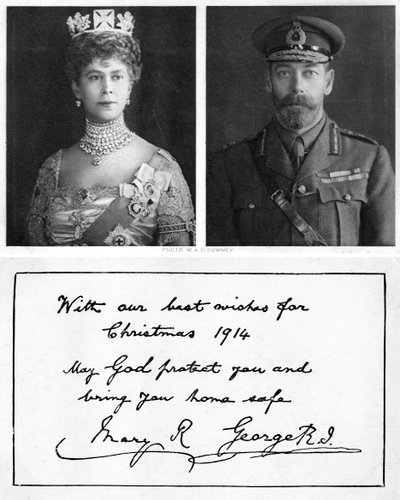 PHOTO. W. & D. DOWNEY
With our best wishes for
Christmas 1914
May God protect you and
bring you home safe
Mary R George R.I.